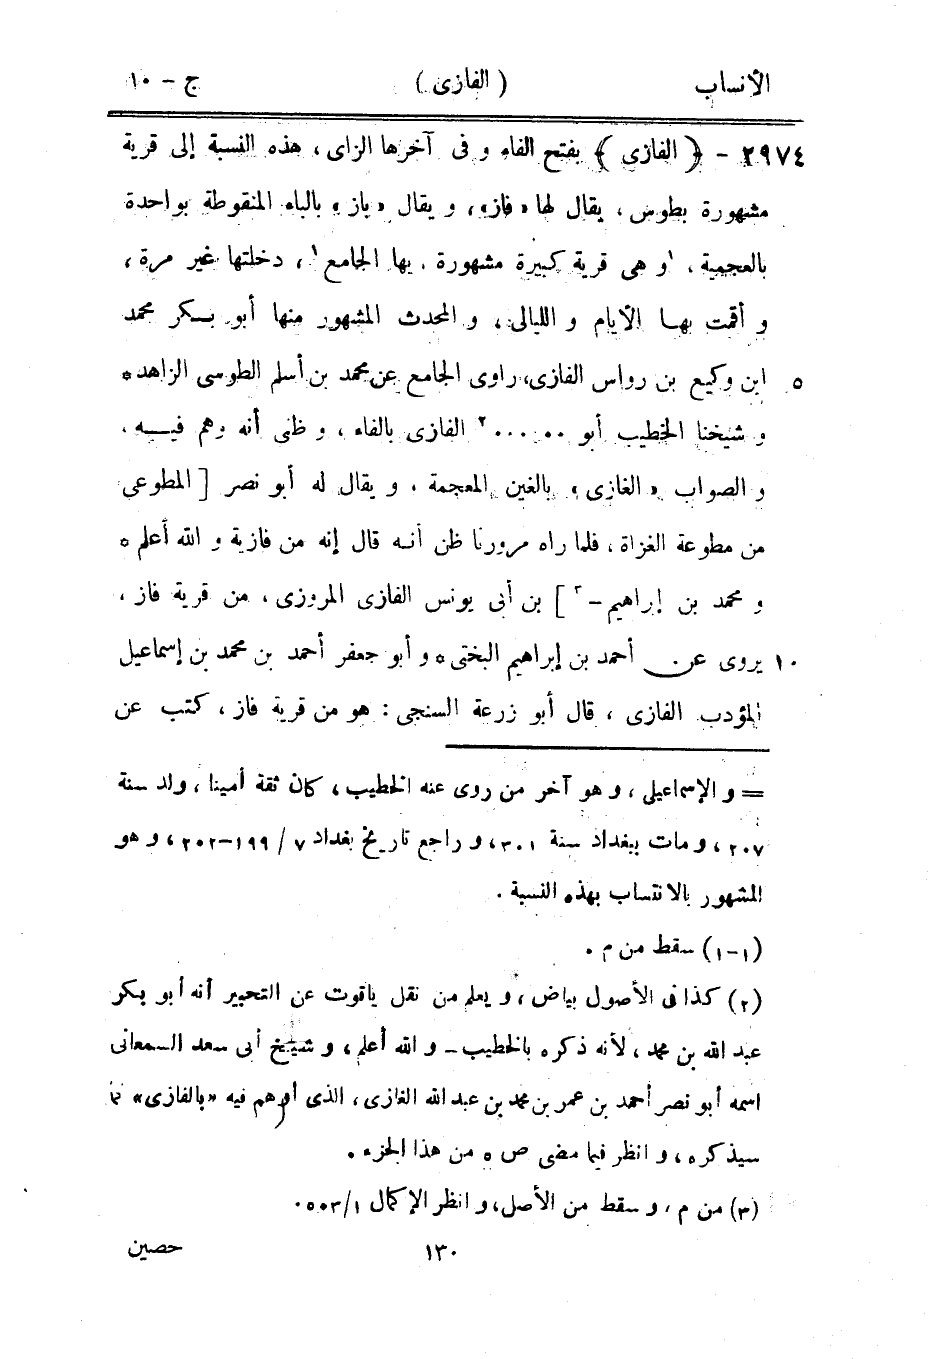 الأنساب ( الفازى ) ج - ١٠
٢٩٧٤ - ﴿ الفازى ﴾ بفتح الفاء و فى آخرها الزاى ، هذه النسبة إلى قرية
مشهورة بطوس ، يقال لها « فاز » ، و يقال « باز » بالباء المنقوطة بواحدة
بالعجمية ، ١و هى قرية كبيرة مشهورة ، بها الجامع١ ، دخلتها غير مرة ،
و أقمت بها الأيام و الليالى ، و المحدث المشهور منها أبو بكر محمد
٥ ابن وكيع بن رواس الفازى ، راوى الجامع عن محمد بن أسلم الطوسى الزاهد *
و شيخنا الخطيب أبو ......٢ الفازى بالفاء ، و ظنى أنه وهم فيه ،
و الصواب « الغازى » بالغين المعجمة ، و يقال له أبو نصر [ المطوعى
من مطوعة الغزاة ، فلما راه مرورنا ظن أنه قال إنه من فازية و الله أعلم *
و محمد بن إبراهيم -٣ ] بن أبى يونس الفازى المروزى ، من قرية فاز ،
١٠ يروى عن أحمد بن إبراهيم البختى * و أبو جعفر أحمد بن محمد بن إسماعيل
المؤدب الفازى ، قال أبو زرعة السنجى : هو من قرية فاز ، كتب عن
= و الإسماعيلى ، و هو آخر من روى عنه الخطيب ، كان ثقة أمينا ، ولد سنة
٢٠٧ ، و مات ببغداد سنة ٣٠١ ، و راجع تاريخ بغداد ٧ / ١٩٩-٢٠٢ ، و هو
المشهور بالانتساب بهذه النسبة .
(١-١) سقط من م .
(٢) كذا فى الأصول بياض ، و يعلم من نقل ياقوت عن التحبير أنه أبو بكر
عبد الله بن محمد ، لأنه ذكره بالخطيب - و الله أعلم ، و شيخ أبى سعد السمعانى
اسمه أبو نصر أحمد بن عمر بن محمد بن عبد الله الغازى ، الذى أوهم فيه « بالفازى » كما
سيذكره ، و انظر فيما مضى ص ٥ من هذا الجزء .
(٣) من م ، و سقط من الأصل ، و انظر الإكمال ١/ ٥٠٣ .
١٣٠ حصين